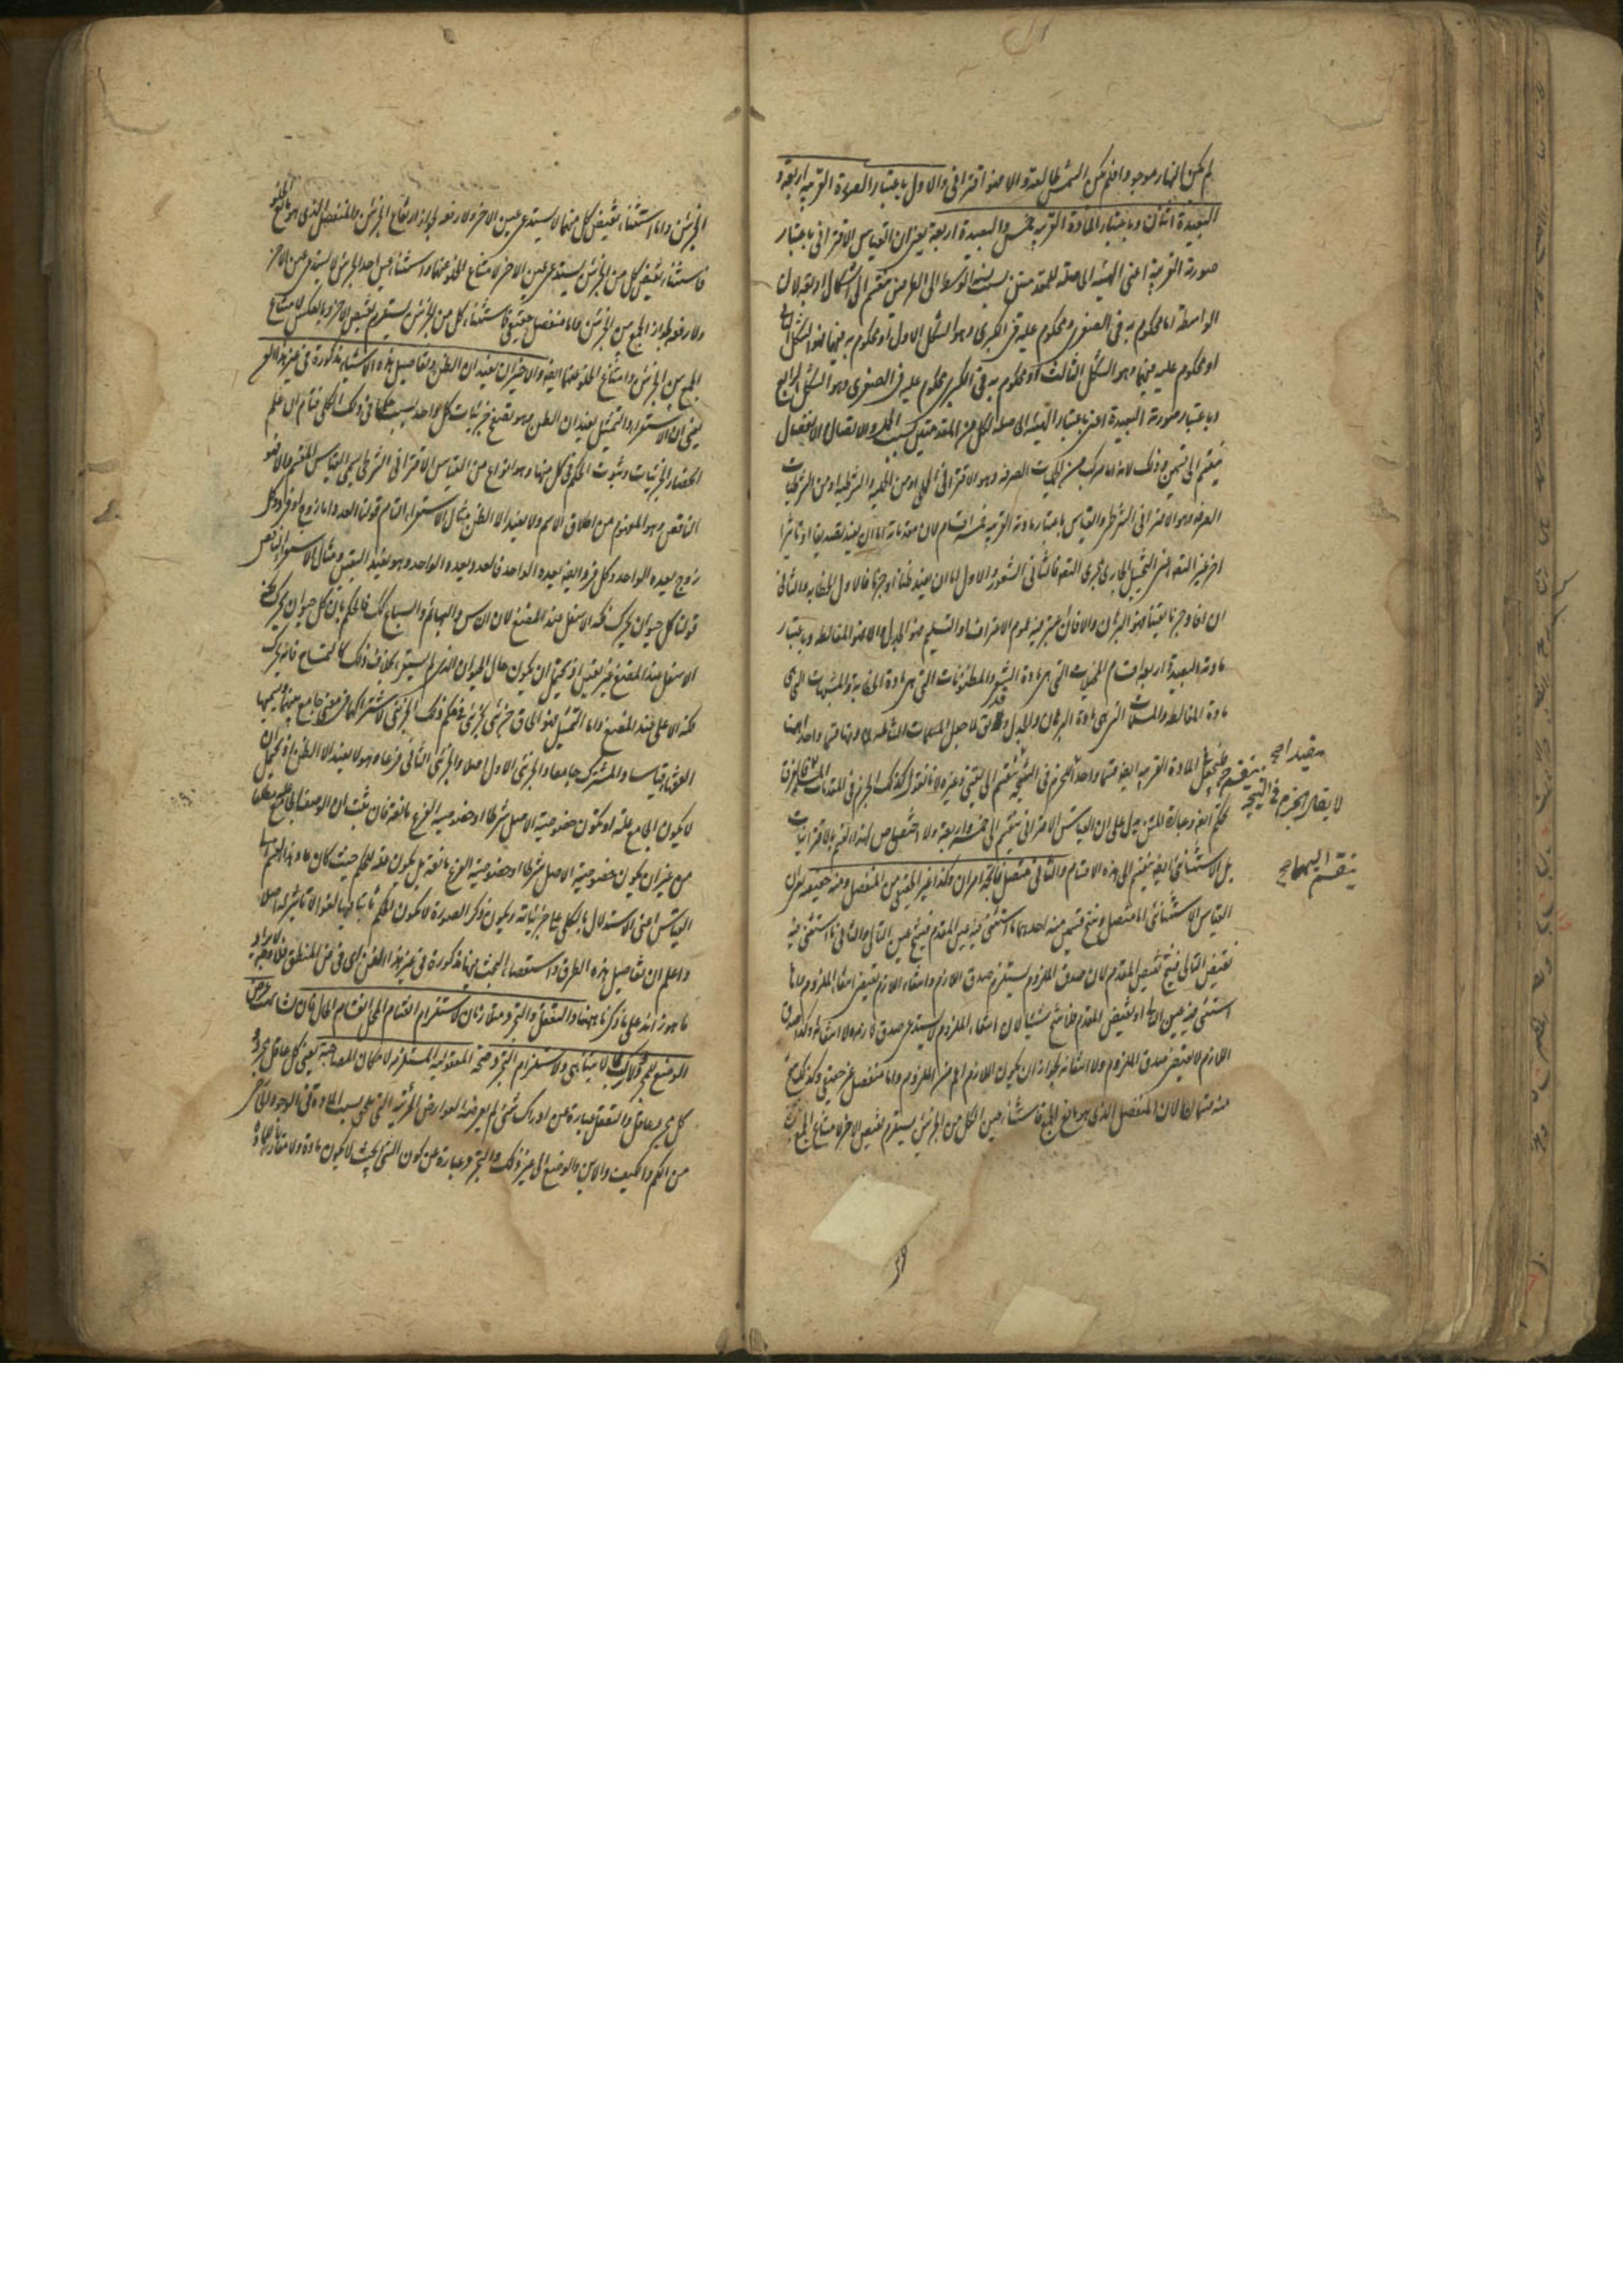 لم يكن النهار موجودا فلم تكن الشمس طالعة والا فهو اقتراني والاول باعتبار الصورة القريبة اربعة و
البعيدة اثنان وباعتبار المادة القريبة خمس والبعيدة اربعة يعني ان القياس الاقتراني باعتبار
صورته القريبة اعني الهيئة الحاصلة للمقدمتين بسبب نسبة الوسط الى الطرفين ينقسم الى اشكال اربعة لان
الواسطة اما محكوم به في الصغرى ومحكوم عليه في الكبرى وهو الشكل الاول او محكوم به فيهما فهو الشكل الثاني
او محكوم عليه فيهما وهو الشكل الثالث او محكوم به في الكبرى محكوم عليه في الصغرى وهو الشكل الرابع
وباعتبار صورته البعيدة اعني باعتبار الهيئة الحاصلة لكل من المقدمتين بسبب الحمل والاتصال والانفصال
ينقسم الى قسمين وذلك لانه اما مركب من الحمليات الصرفة وهو الاقتراني الحملي او من الحملية والشرطية او من الشرطيات
الصرفة وهو الاقتراني الشرطي والقياس باعتبار مادته القريبة خمسة اقسام لان مقدماته اما ان يفيد تصديقا او تاثيرا
اخر غير التصديق اعني التخييل الجاري مجرى التصديق فالثاني الشعر والاول اما ان يفيد ظنا او جزما فالاول الخطابه والثاني
ان افاد جزما يقينا فهو البرهان والا فان اعتبر فيه عموم الاعتراف او التسليم فهو الجدل والا فهو المغالطة وباعتبار
مادته البعيدة اربعة اقسام المخيلات التي هي مادة الشعر والمظنونات التي هي مادة الخطابة والمشبهات التي هي
مادة المغالطة والمسلمات التي هي مادة البرهان والجدل
فليجعل المادة القريبة ايضا قسما واحدا
لا يقال الجزم في النتيجة
ينقسم اليهما
وعبارة المتن يدل على ان القياس الاقتراني ينقسم الى خمسة واربعة ولا اختصاص لهذا القسم بالاقترانيات
بل الاستثنائي ايضا ينقسم الى هذه الاقسام والثاني متصل ناتجه امران وكذا غير الحقيقي من المنفصل ومنه حقيقية
القياس الاستثنائي اما متصل وينتج قسمين منه احدهما ما استثني فيه عين المقدم فينتج عين التالي والثاني ما استثني فيه
نقيض التالي فينتج نقيض المقدم لان صدق الملزوم يستلزم صدق اللازم وانتفاء اللازم يقتضي انتفاء الملزوم واما
استثني فيه عين التالي او نقيض المقدم فلا ينتج شيئا لان انتفاء الملزوم لا يستدعي صدق لازمه ولا انتفائه وكذا صدق
اللازم لا يقتضي صدق الملزوم ولا انتفائه لجواز ان يكون اللازم اعم من الملزوم واما منفصل غير حقيقي وكذلك ينتج
منه قسمان لان المنفصل الذي هو مانع الجمع فاستثناء عين لكل من الجزئين يستلزم نقيض الاخر لامتناع الجمع بين
الجزئين واما استثناء نقيض كل منهما لا يستدعي عين الاخر ولا رفعه لجواز ارتفاع الجزئين والمنفصل الذي هو مانع الخلو
فاستثناء نقيض كل من الجزئين يستدعي عين الاخر لامتناع الخلو عنهما واستثناء عين احد الجزئين لا يستدعي عين الاخر
ولا رفعه لجواز الجمع بين الجزئين واما منفصل حقيقي فاستثناء كل من الجزئين يستلزم نقيض الاخر وبالعكس لامتناع
الجمع بين الجزئين وامتناع الخلو عنهما ايضا والاخيران يفيدان الظن وتفاصيل هذه الاشياء مذكورة في غير هذا الفن
يعني ان الاستقراء والتمثيل يفيدان الظن وهو تصفح جزئيات كل واحد ليثبت حكمها في ذلك الكلي فتام ان علم
انحصار الجزئيات وثبوت الحكم في كل منها وهو انواع من القياس الاقتراني الشرطي يسمى القياس المقسم والا فهو
الناقص وهو المفهوم من اطلاق الاسم ولا يفيد الا الظن مثال الاستقراء التام قولنا العدد اما زوج او فرد وكل
زوج يعده الواحد وكل فرد ايضا يعده الواحد فالعدد يعده الواحد وهو يفيد اليقين ومثال الاستقراء الناقص
قولنا كل حيوان يحرك فكه الاسفل عند المضغ لان الناس والبهائم والسباع كذلك فالحكم بان كل حيوان يحرك فكه
الاسفل عند المضغ غير يقيني اذ يحتمل ان يكون حال الحيوان الذي لم يستقرء بخلاف ذلك كالتمساح فانه يحرك
فكه الاعلى عند المضغ واما التمثيل فهو الحاق جزئي بجزئي في حكم ذلك الجزئي لاشتراكهما في معنى جامع بينهما ويسميها
الفقهاء قياسا والمشترك جامعا والجزئي الاول اصلا والجزئي الثاني فرعا وهو لا يفيد الا الظن اذ يحتمل ان
لا يكون الجامع علة او تكون خصوصية الاصل شرطا او خصوصية الفرع مانعة فان ثبت ان الوصف الجامع علة مطلقا
من غير ان يكون خصوصية الاصل شرطا او خصوصية الفرع مانعة بل يكون علة للحكم حيث كان عاد هذا القسم الى
القياس اعني الاستدلال بالكلي على جزئياته ويكون ذكر الصورة
واعلم ان تفاصيل هذه الطرق واستقصاء البحث فيها مذكورة في غير هذا الفن اي في فن المنطق فلا وجه لايراد
ما هو زائد على ما ذكرنا ههنا والتعقل والتجرد متلازمان لاستلزام انقسام المحل انقسام الحال فان تشابهت عرض
الوضع للمجرد والا تركب مما لا يتناهى ولاستلزام التجرد صحة المعقولية المستلزمة لامكان المصاحبة يعني كل عاقل مجرد
كل مجرد عاقل والتعقل عبارة عن ادراك شئ لم يعرضه العوارض الجزئية التي تلحق بسبب المادة في الوجود الخارجي
من الكم والكيف والاين والوضع الى غير ذلك والتجرد عبارة عن كون الشئ بحيث لا يكون مادة ولا مقارنا للمادة